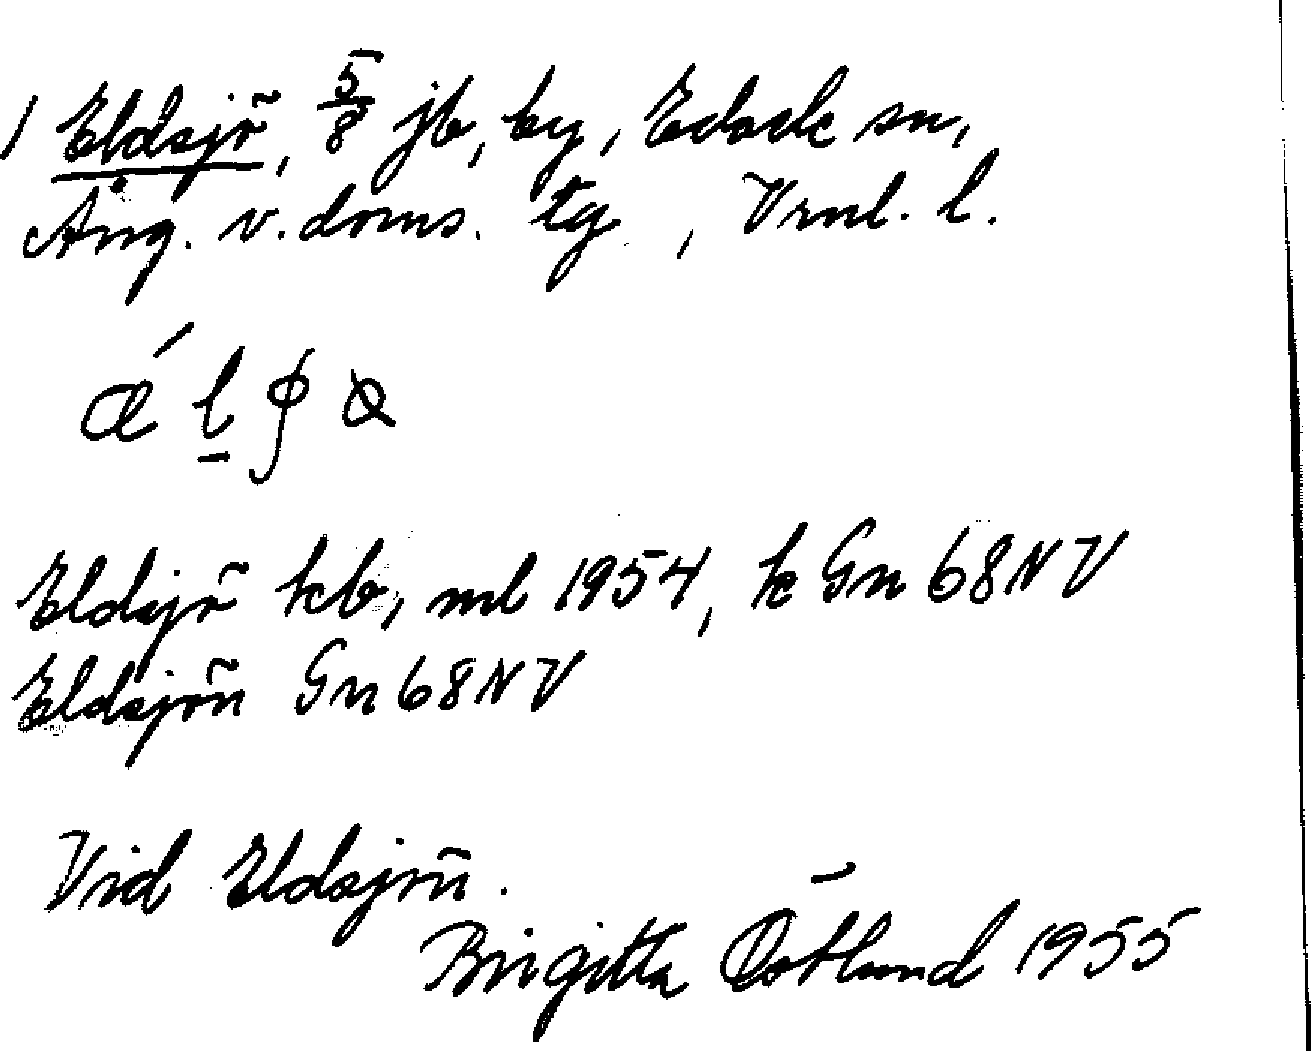 1 Eldsjö, 5/8 jb, by, Edsele sn,
Ång. v. doms. tg, Vrnl. l.
Eldsjö kb, ml 1954, k Gn 68NV
Eldsjön Gn 68NV
Vid Eldsjön.
Birgitta Östlund 1955